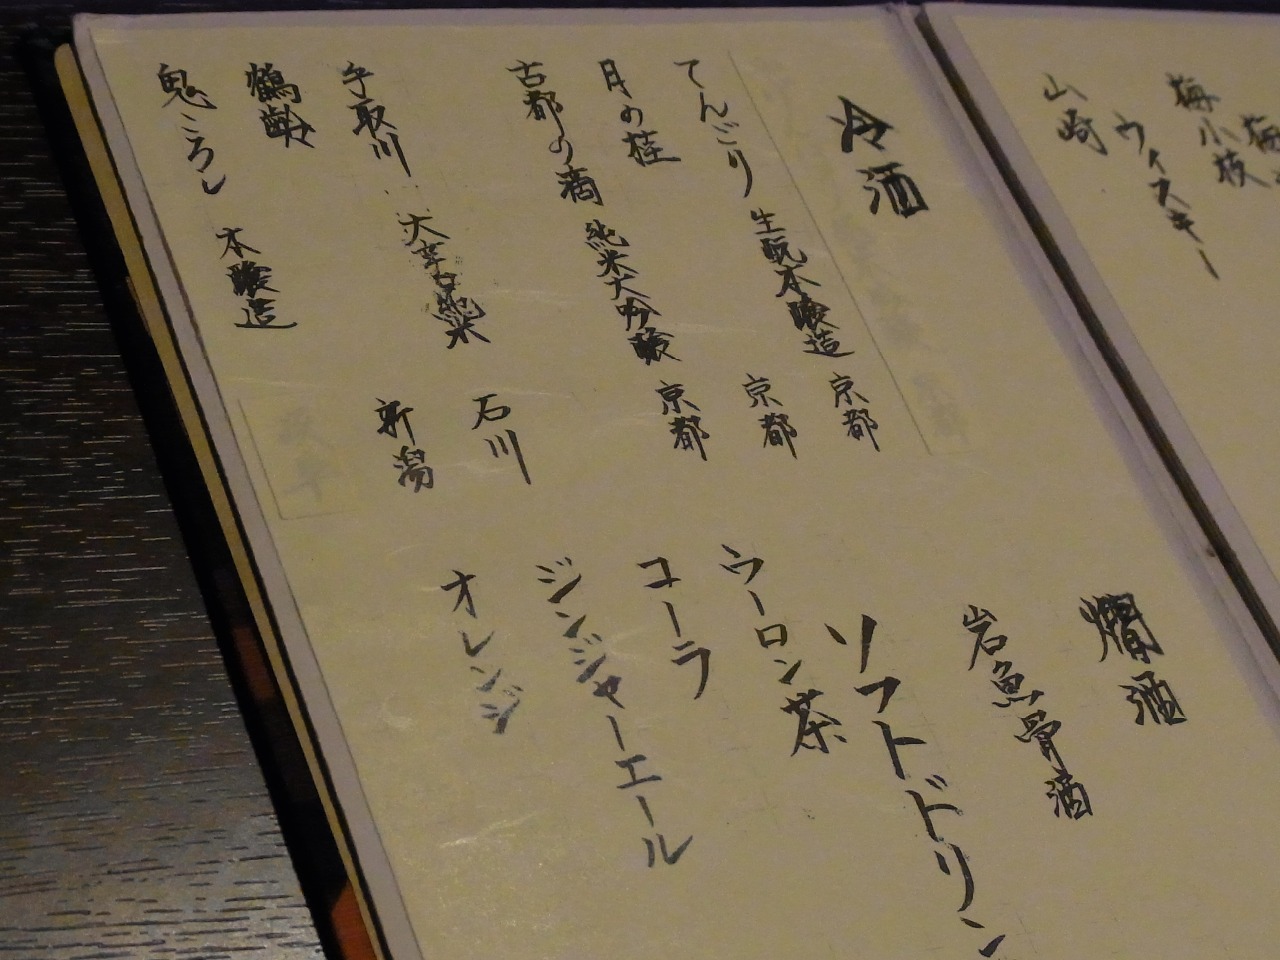 梅小枝
ウイスキー
山崎
冷酒
てんごり 生酛本醸造 京都
月の桂 京都
古都の滴 純米大吟醸 京都
手取川 大辛口純米 石川
鶴齢 新潟
鬼ころし 本醸造
燗酒
岩魚骨酒
ソフトドリン
ウーロン茶
コーラ
ジンジャーエール
オレンジ